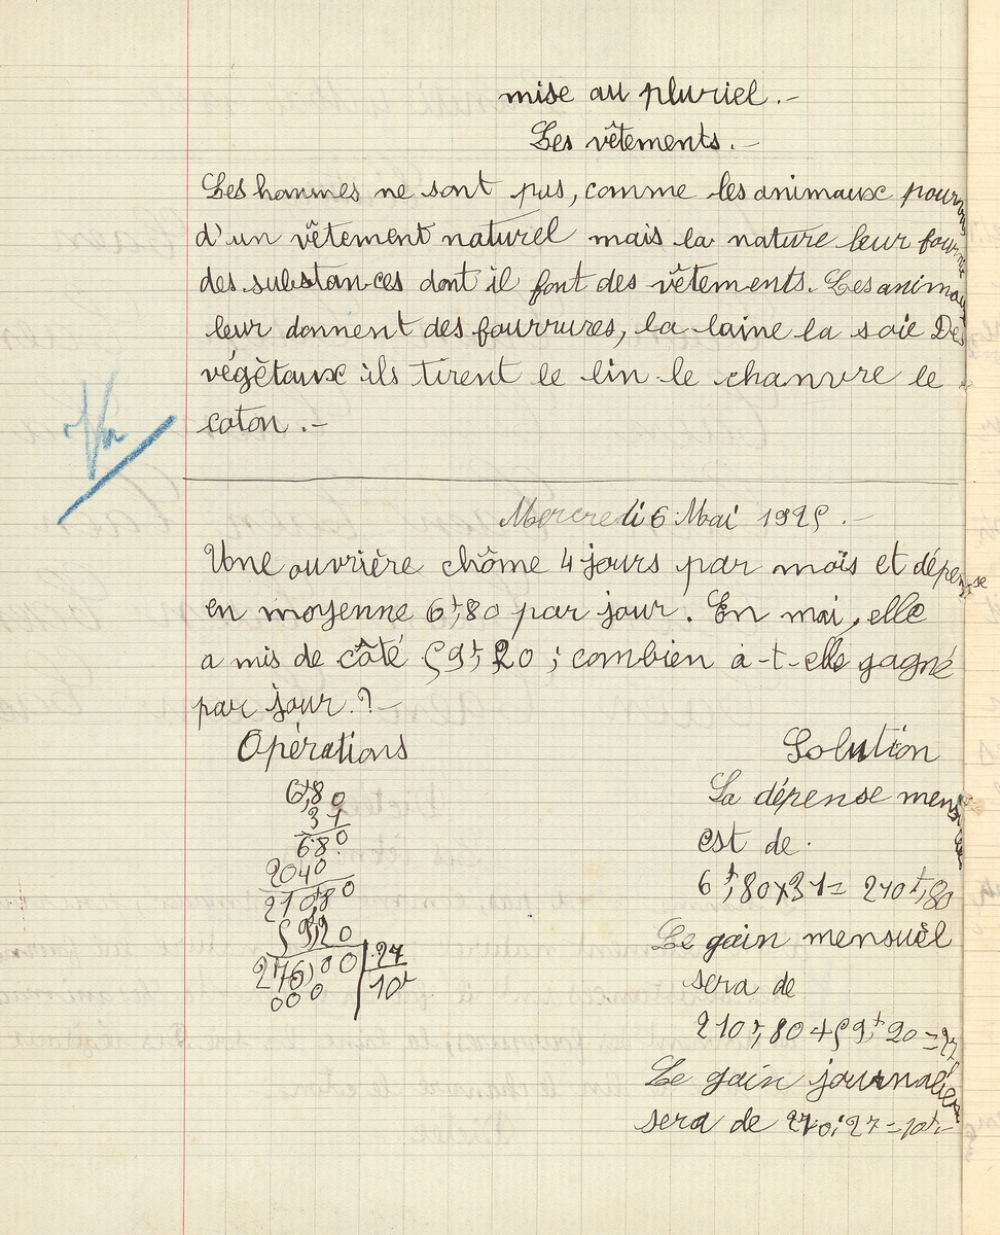 mise au pluriel.-
Les vêtements.-
Les hommes ne sont pas, comme les animaux pourvus
d'un vêtement naturel mais la nature leur fournie
des substances dont il font des vêtements. Les animaux
leur donnent des fourrures, la laine la soie Des
végétaux ils tirent le lin le chanvre le
coton.-
Vu
Mercredi 6 Mai 1925.-
Une ouvrière chôme 4 jours par mois et dépense
en moyenne 6f,80 par jour. En mai, elle
a mis de côté 59f,20 ; combien a-t-elle gagné
par jour.?-
Opérations
Solution
6f,80
31
680
2040
210f,80
59,20
276,00 27
000 10f
La dépense
est de.
6f,80x31= 210f,80
Le gain mensuel
sera de
210f,80+59f20=27
Le gain journalier
sera de 270:27=10f-